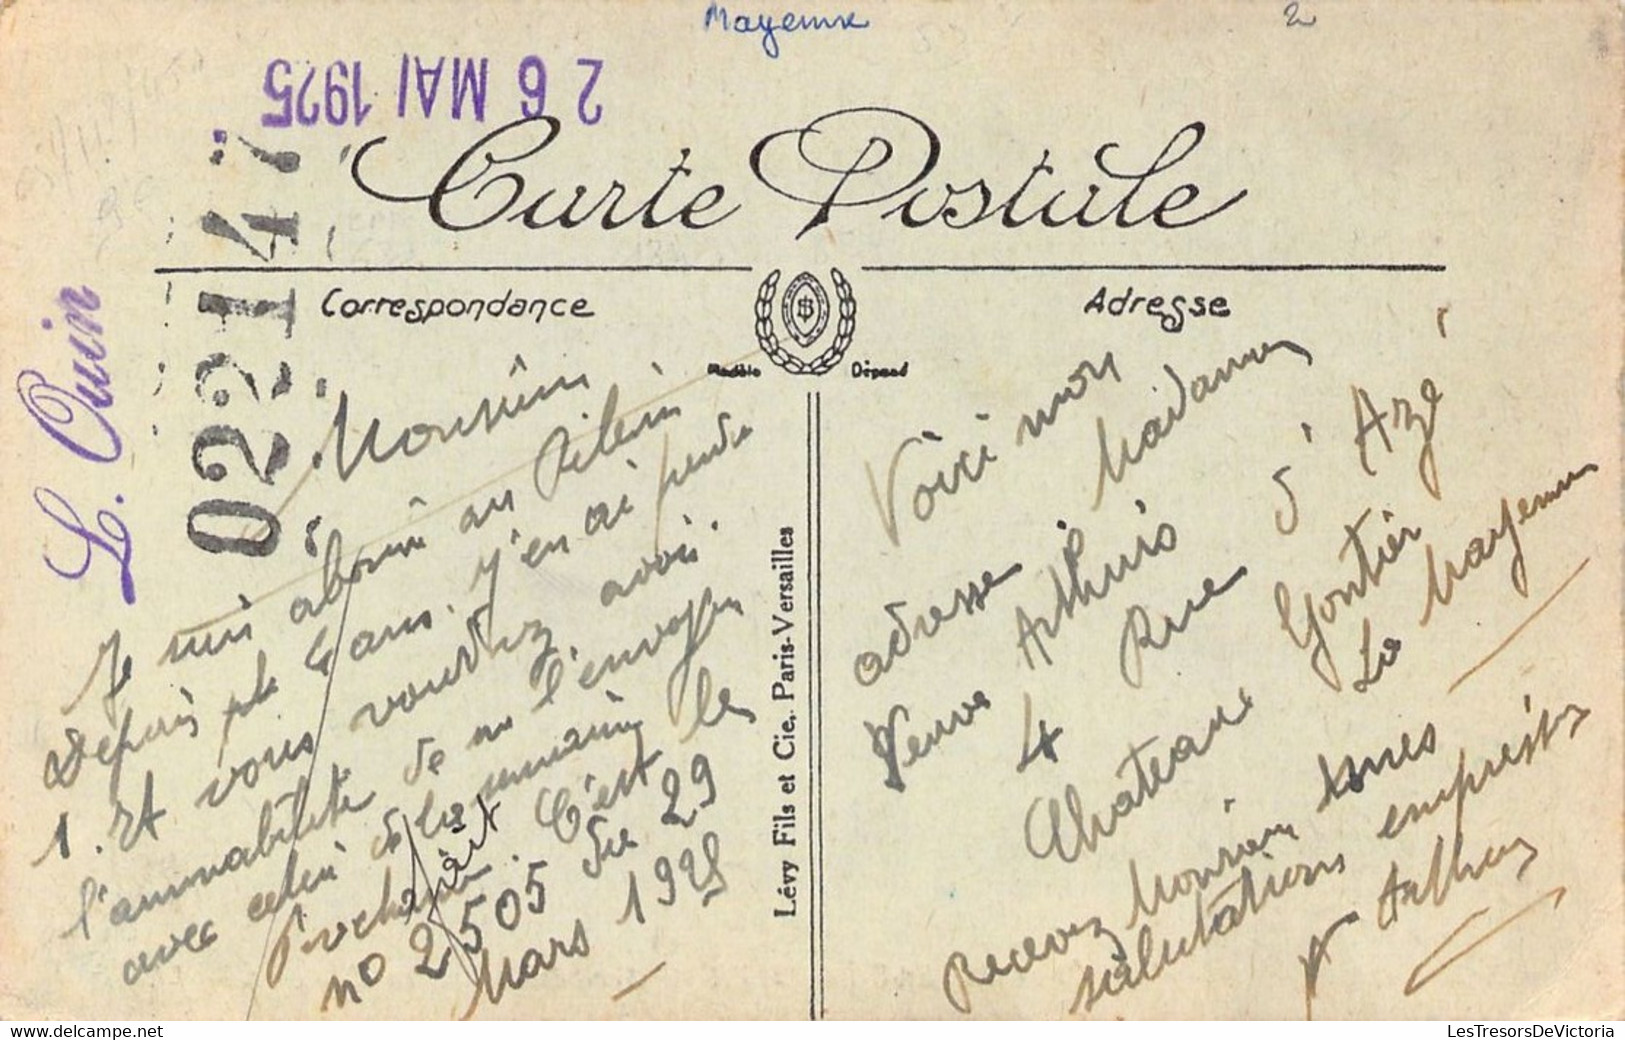 Mayenne
2
26 MAI 1925
Carte Postale
022147
L. Ouin
Correspondance
Adresse
Modèle Déposé
Lévy Fils et Cie, Paris-Versailles
Monsieur
Je suis abonné au Pélerin
depuis ple 4 ans. J'en ai perdu
1. Et vous voudrez avoir
l'ammabilité de me l'envoyer
avec celui de la semaine
prochaine. C'est le
no 2505 du 29
Mars 1925
Voici mon
adresse Madame
Veuve Arthuis
4 Rue d'Azé
Chateau Gontier
La Mayenne
Recevez Monsieur mes
salutations empressées
Vve Arthuis
LesTresorsDeVictoria
www.delcampe.net